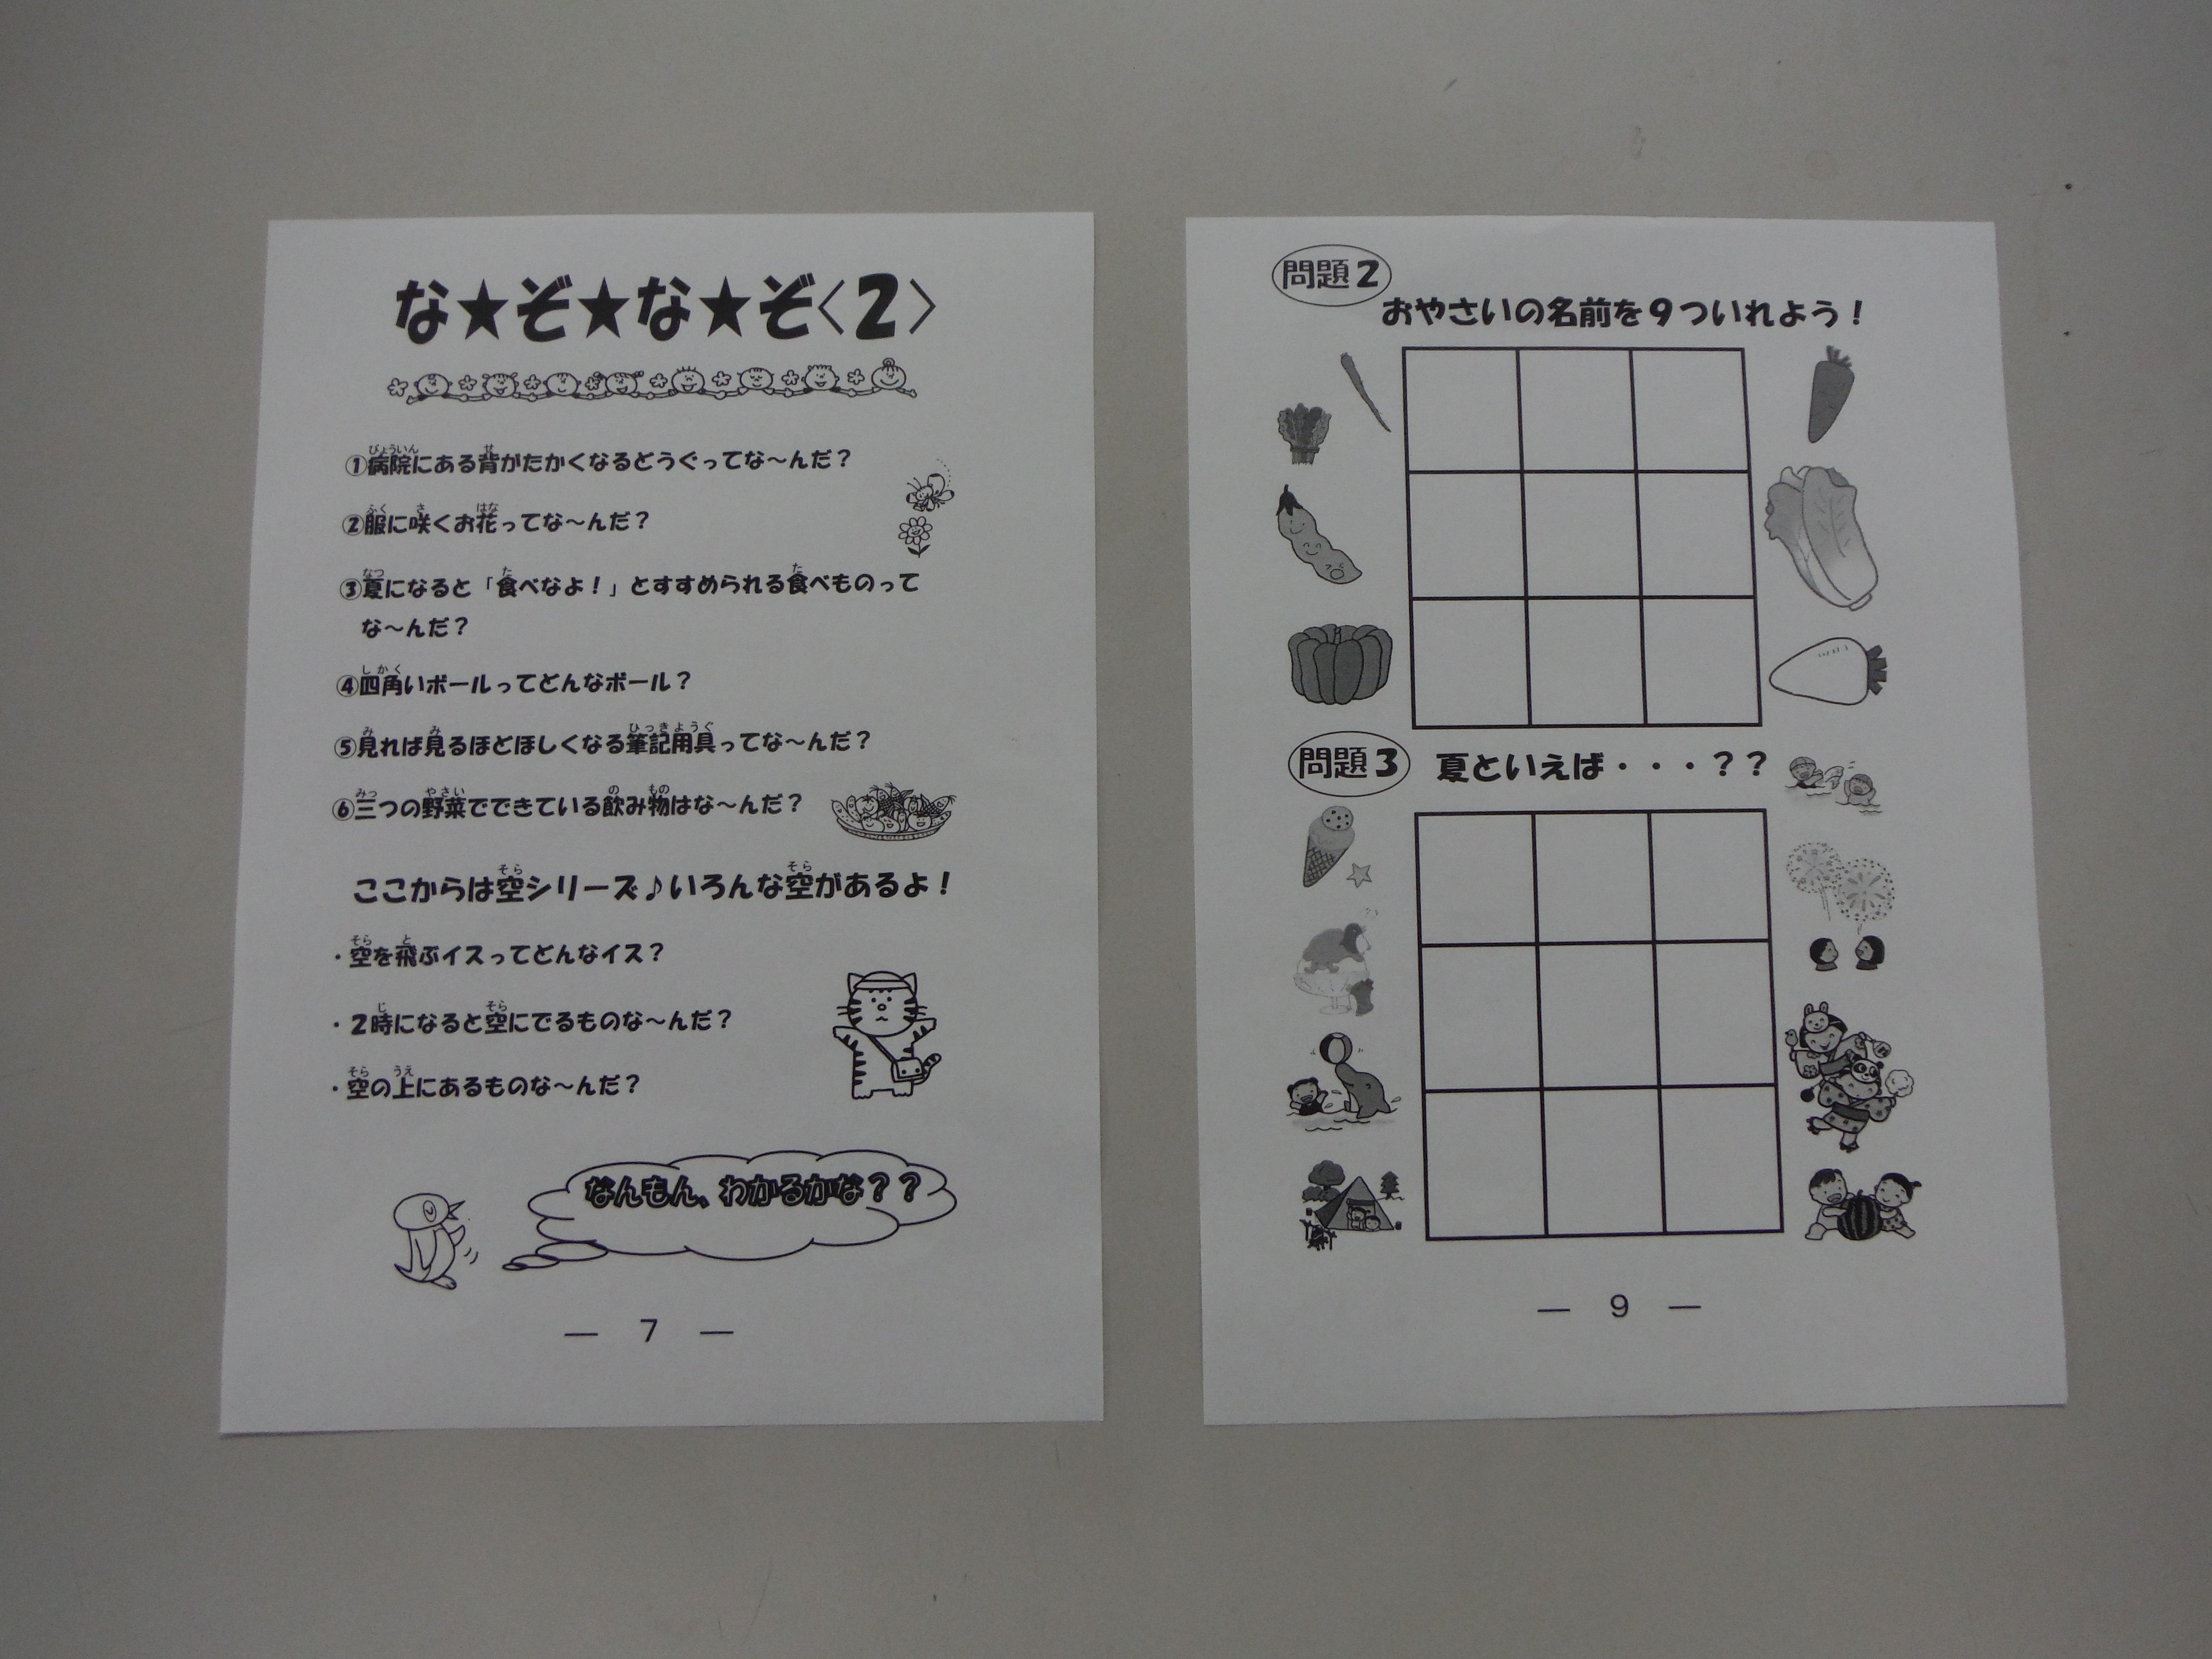 な★ぞ★な★ぞ〈2〉
①病院にある背がたかくなるどうぐってな～んだ？
②服に咲くお花ってな～んだ？
③夏になると「食べなよ！」とすすめられる食べものって
な～んだ？
④四角いボールってどんなボール？
⑤見れば見るほどほしくなる筆記用具ってな～んだ？
⑥三つの野菜でできている飲み物はな～んだ？
ここからは空シリーズ♪いろんな空があるよ！
・空を飛ぶイスってどんなイス？
・2時になると空にでるものな～んだ？
・空の上にあるものな～んだ？
なんもん、わかるかな？？
— 7 —
問題2
おやさいの名前を9ついれよう！
問題3 夏といえば・・・？？
— 9 —